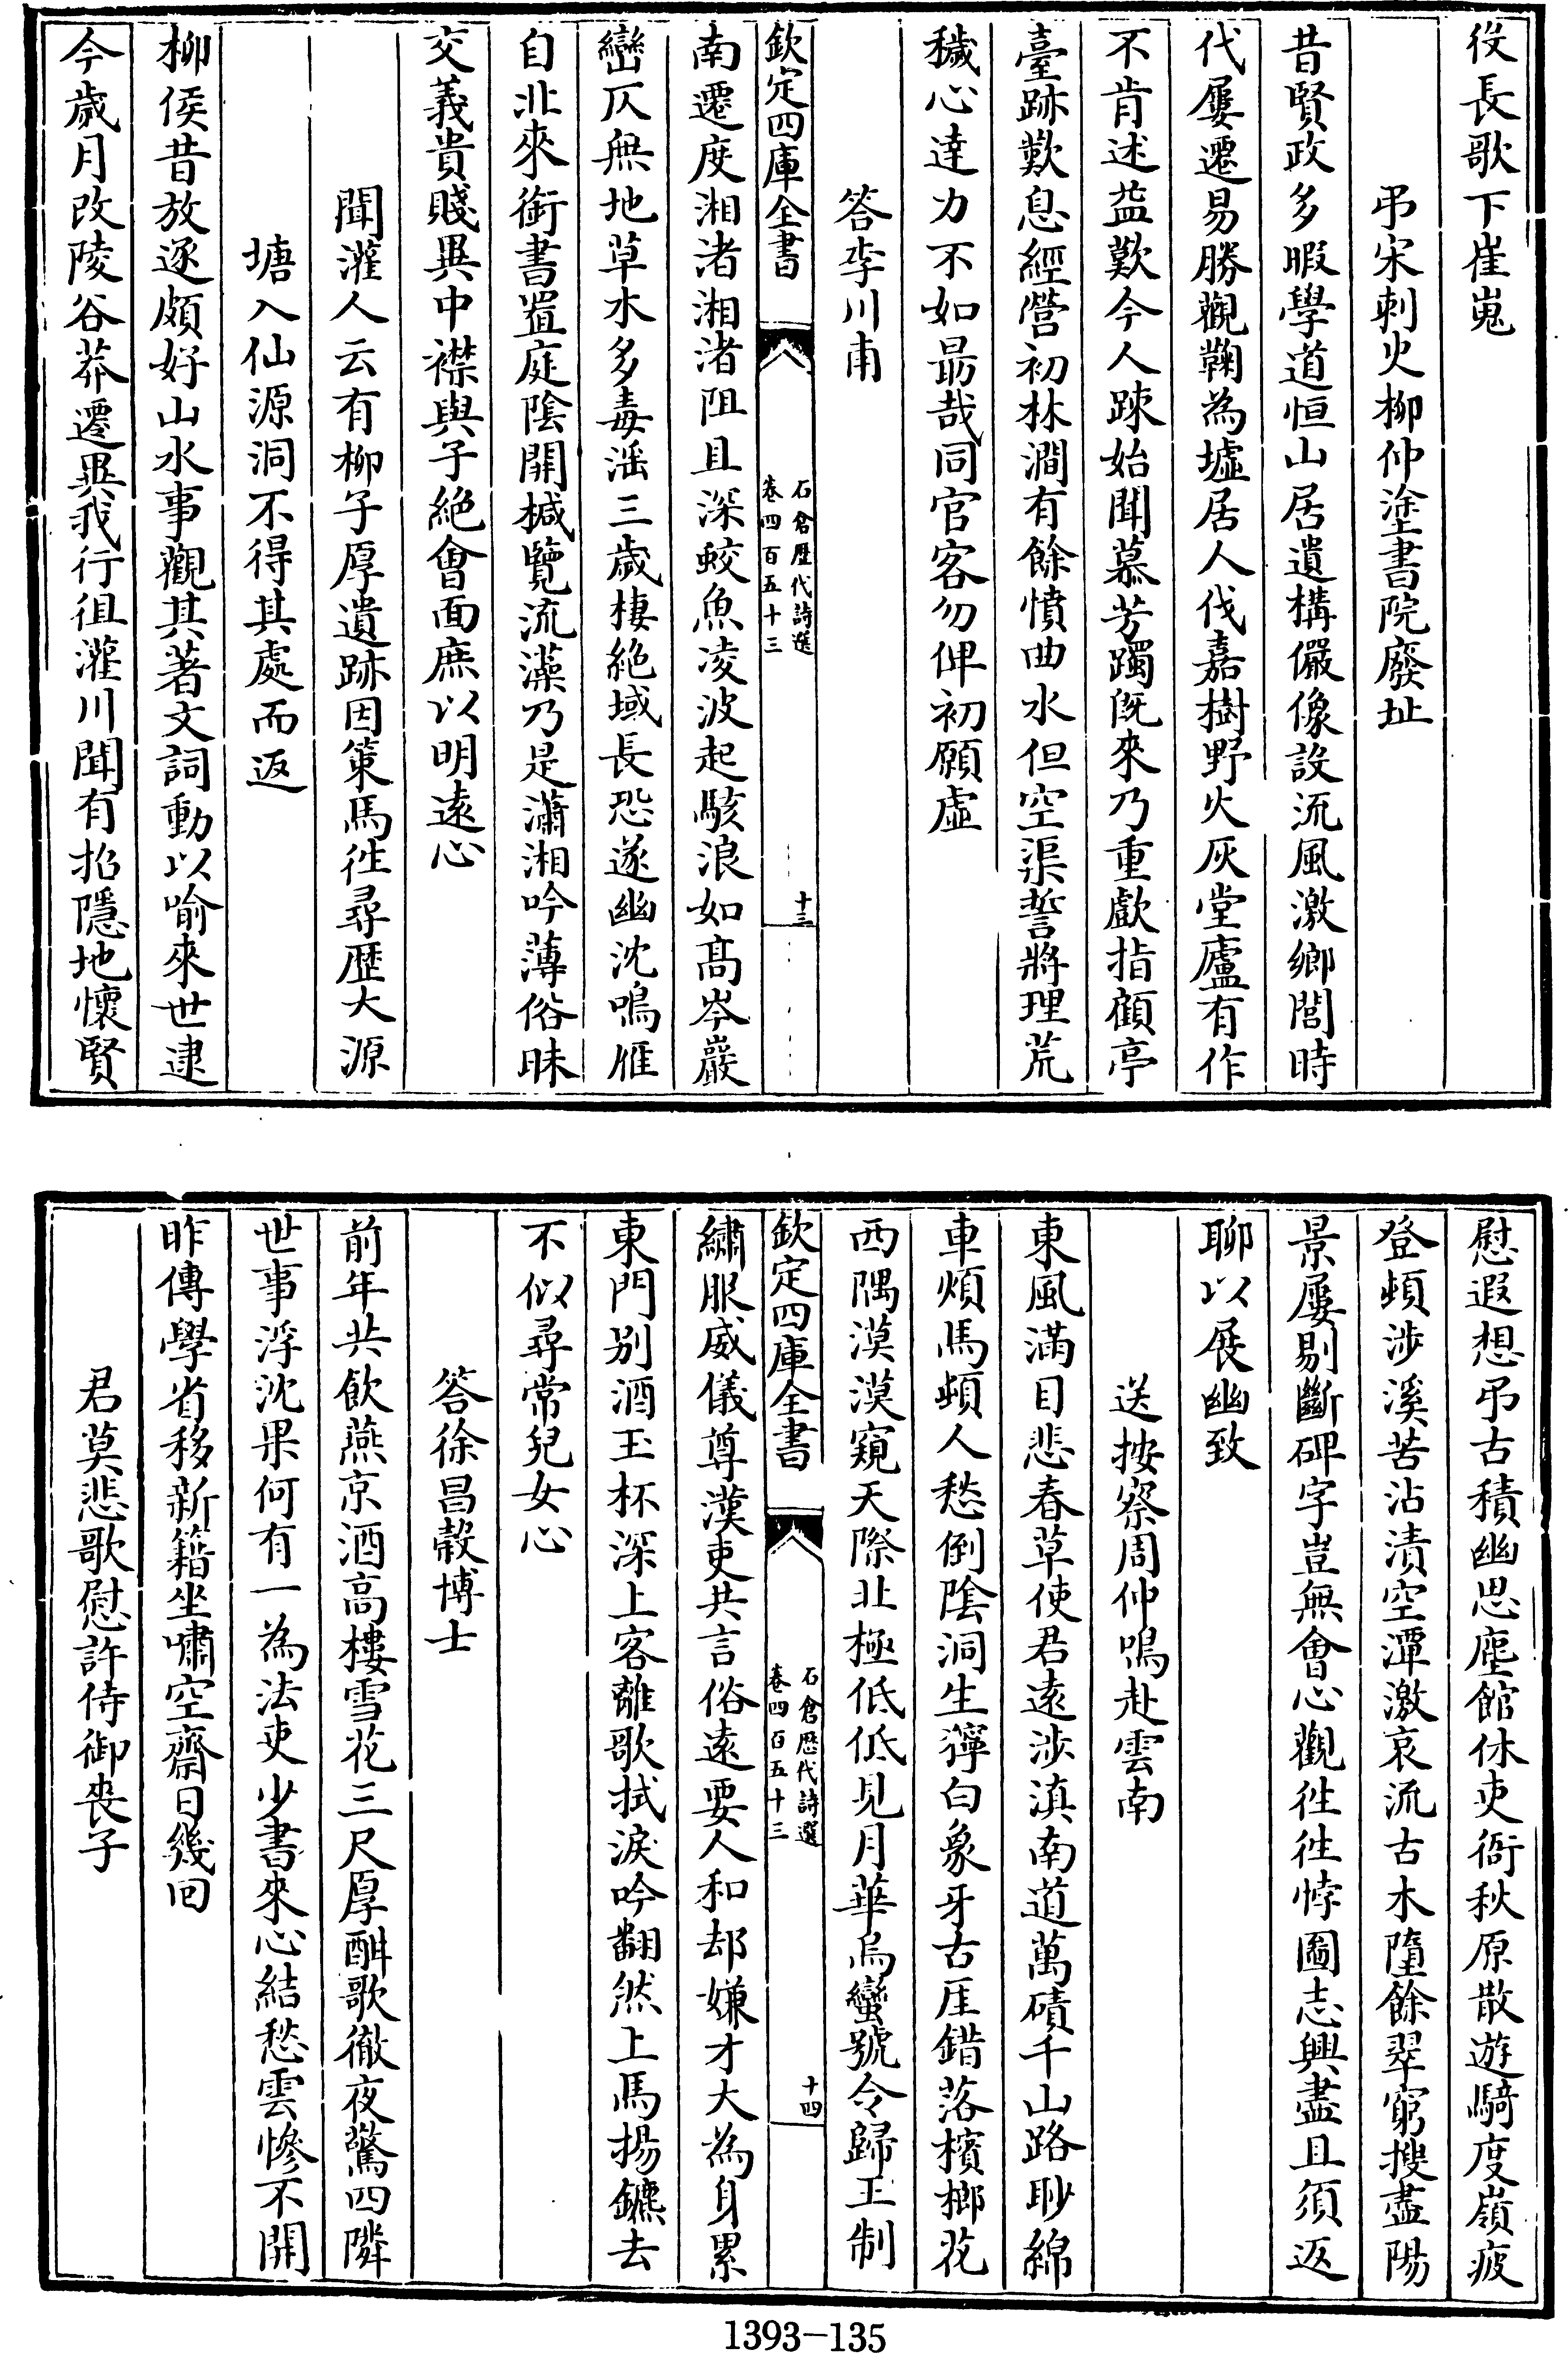 役長歌下崔嵬
弔宋刺火柳仲塗書院廢址
昔賢政多暇學道恒山居遺構儼像設流風激鄉閭時
代屢遷易勝觀鞠為墟居人伐嘉樹野火灰堂廬有作
不肯述益歎今人踈始聞慕芳躅既來乃重歔指顧亭
臺跡歎息經營初林澗有餘憤曲水但空渠誓將理荒
穢心違力不如最哉同官客勿俾初願虛
答李川甫
欽定四庫全書
石倉歷代詩選
卷四百五十三
十三
南遷度湘渚湘渚阻且深蛟魚凌波起駭浪如高岑巖
巒仄無地草水多毒滛三歲棲絶域長恐遂幽沈鳴雁
自北來銜書置庭陰開椷覽流藻乃是瀟湘吟薄俗昧
交義貴賤異中襟與子絶會面庶以明遠心
聞灌人云有柳子厚遺跡因策馬徃尋歷大源
塘入仙源洞不得其處而返
柳侯昔放逐頗好山水事觀其著文詞動以喻來世逮
今歲月改陵谷莽遷異我行徂灌川聞有招隱地懷賢
慰遐想弔古積幽思塵館休吏衙秋原散遊騎度嶺疲
登頓涉溪苦沾漬空潭激哀流古木墮餘翠窮搜盡陽
景屢剔斷碑字豈無會心觀徃徃悖圖志興盡且須返
聊以展幽致
送按察周仲鳴赴雲南
東風滿目悲春草使君遠涉滇南道萬磧千山路眇綿
車煩馬頓人愁倒陰洞生獰白象牙古厓錯落檳榔花
西隅漠漠窺天際北極低低見月華烏蠻號令歸王制
欽定四庫全書
石倉歷代詩選
卷四百五十三
十四
繡服威儀尊漢吏共言俗遠要人和却嫌才大為身累
東門别酒玉杯深上客離歌拭淚吟翻然上馬揚鑣去
不似尋常兒女心
答徐昌穀博士
前年共飲燕京酒高樓雪花三尺厚酣歌徹夜驚四隣
世事浮沈果何有一為法吏少書來心結愁雲慘不開
昨傳學省移新籍坐嘯空齋日幾回
君莫悲歌慰許侍御喪子
1393-135